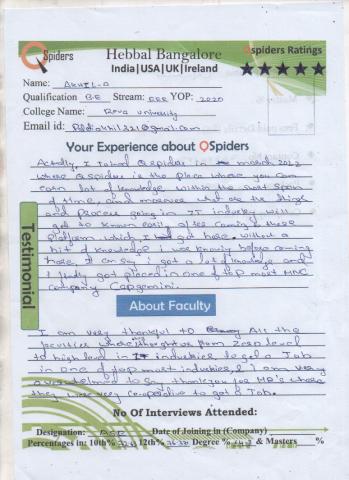 QSpiders
Hebbal Bangalore
India|USA|UK|Ireland
Qspiders Ratings
Name: AKHIL.D
Qualification B.E Stream: EEE YOP: 2020
College Name: Reva University
Email id:
Your Experience about QSpiders
Actually, I Joined Qspiders in march 2022
where Qspiders is the place where you can
earn lot of knowledge within the short span
of time, and moreover what are the things
and process going in IT industry will
get to known easily after coming to these
platform which I got here. without a
bit of knowledge I was knowing before coming
here, I can say i got a lot of knowledge and
I finally got placed in one of top most MNC
company Capgemini.
Testimonial
About Faculty
I am very thankful to All the
faculties who thought us from Zero level
to high level in IT industries to get a Job
in one of top most industries, I am very
overwhelmed to say thank you for HR's where
they were very co-operative to get a Job.
No Of Interviews Attended:
Designation: Date of Joining in (Company)
Percentages in: 10th% 12th% Degree % & Masters %